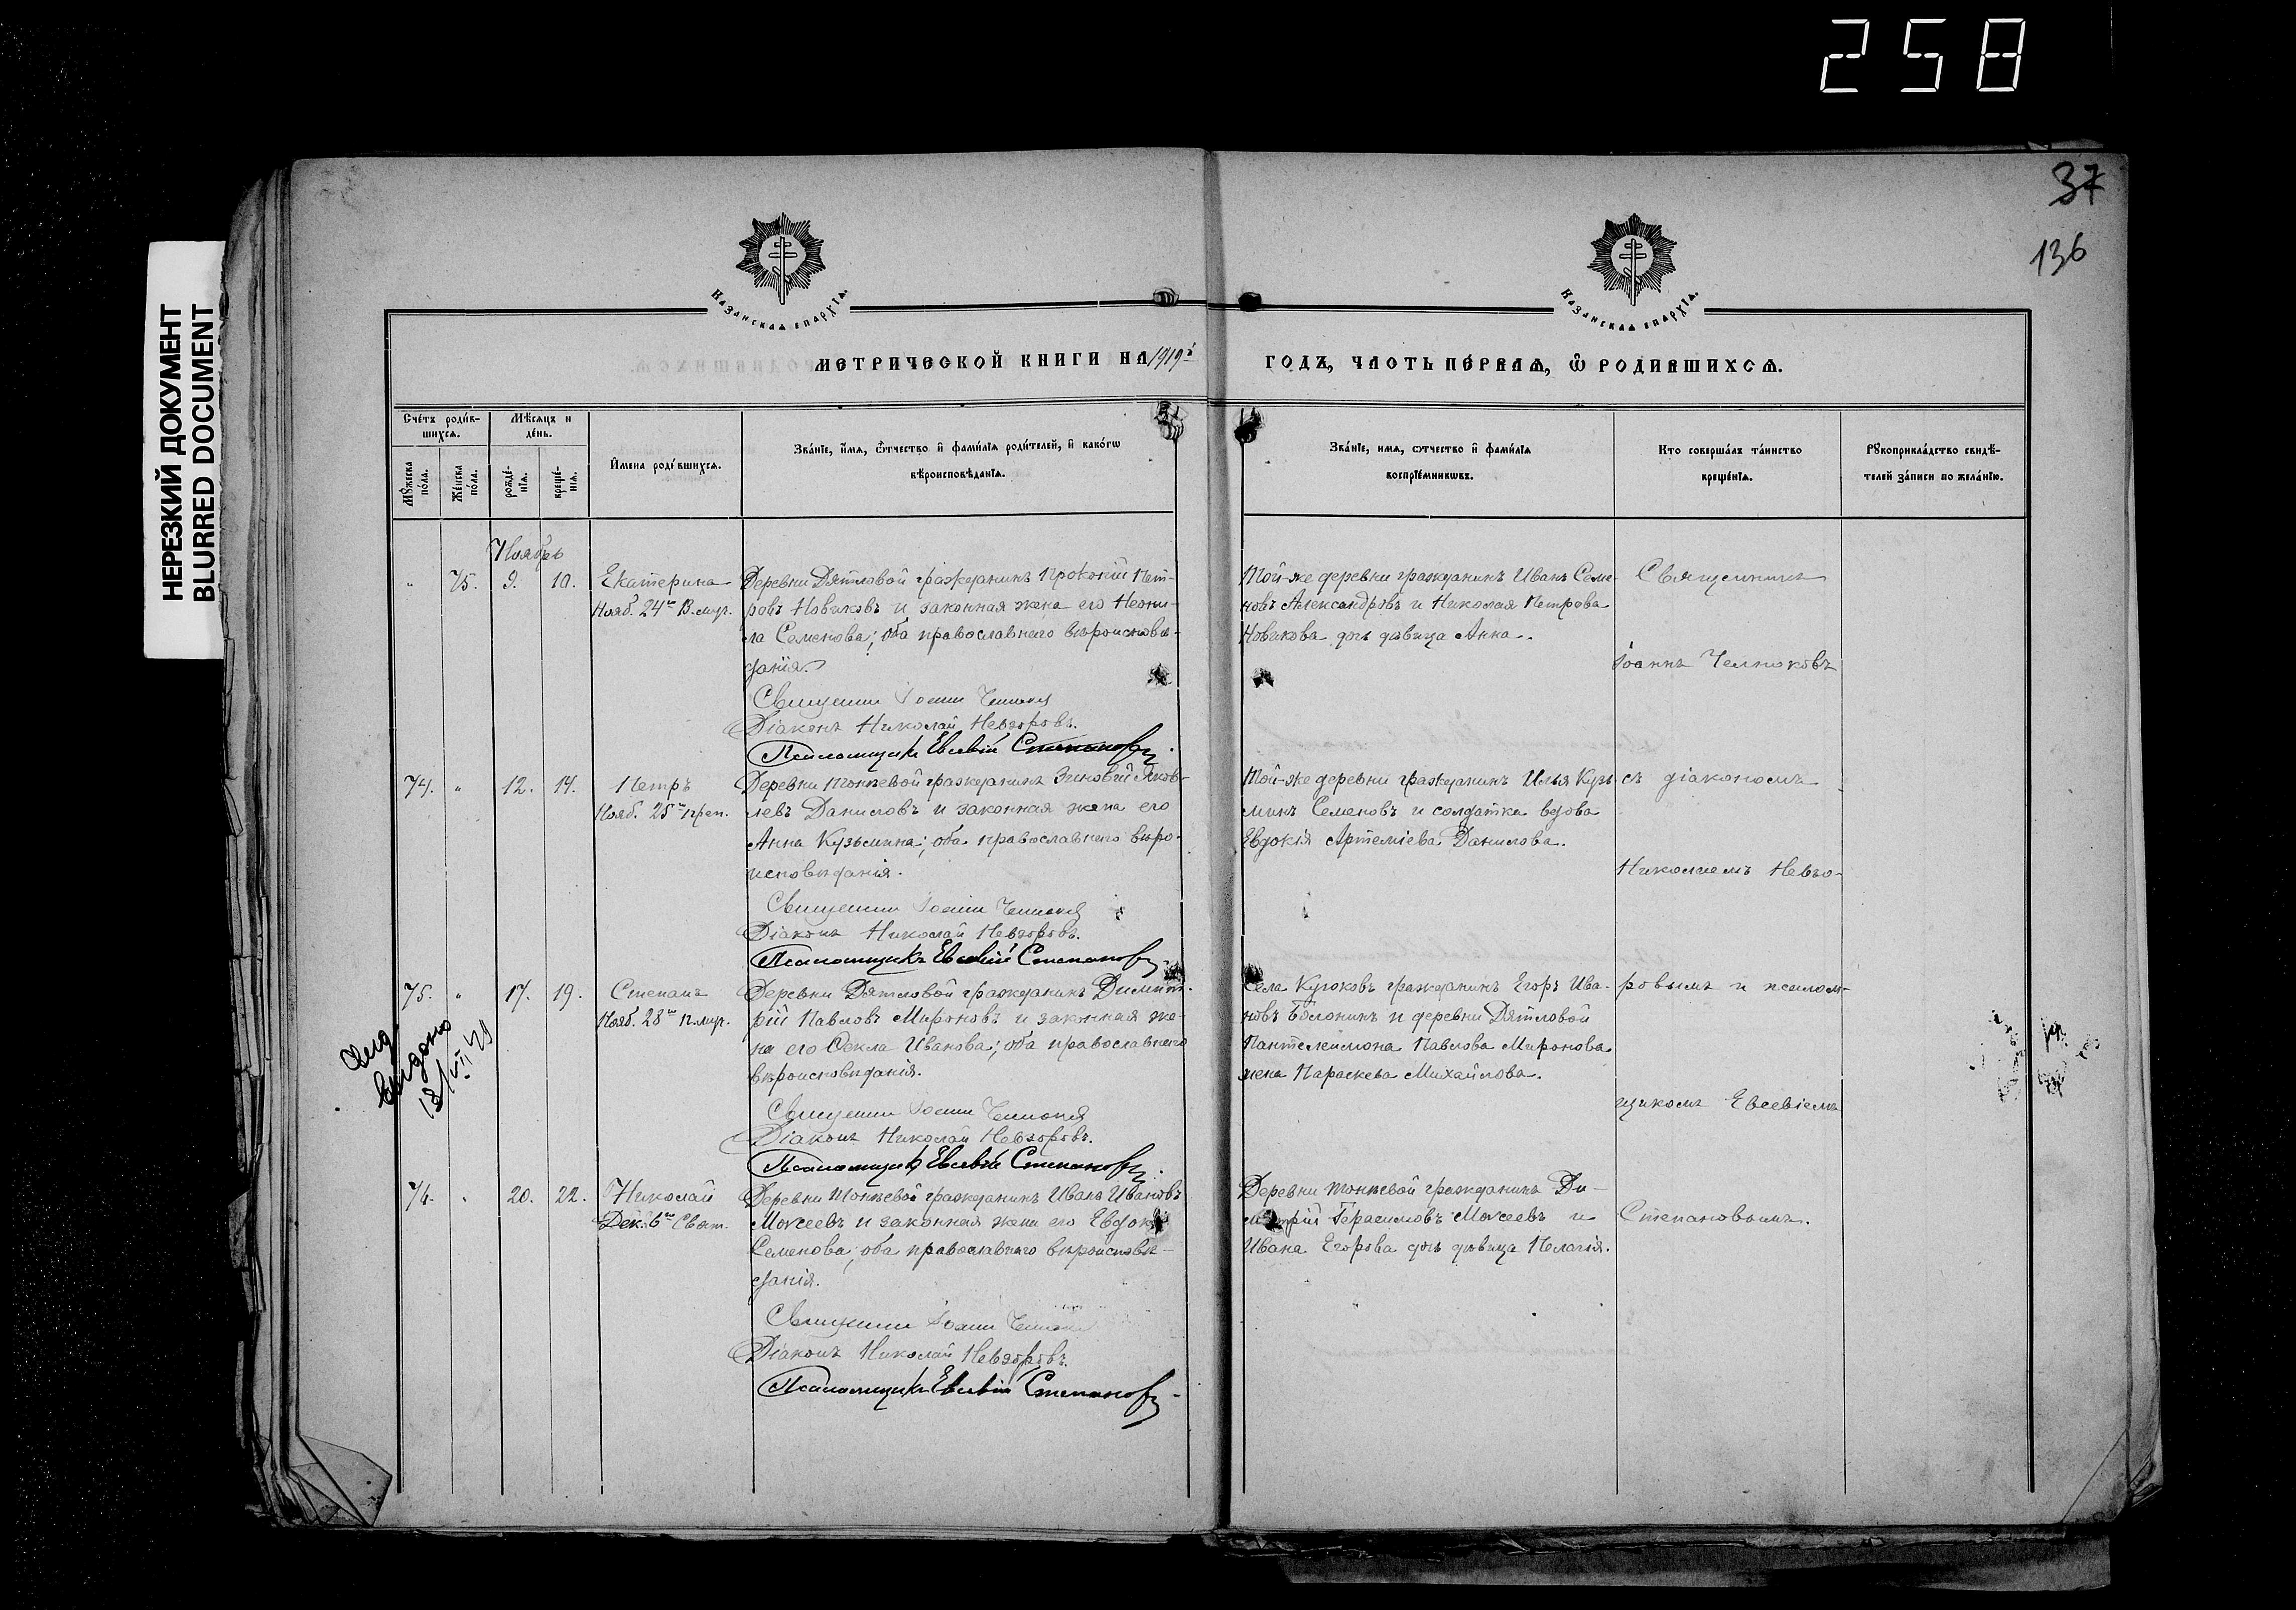 258
НЕРЕЗКИЙ ДОКУМЕНТ
BLURRED DOCUMENT
37
136
Казанская епархїѧ.
Казанская епархїѧ.
МЕТРИЧЕСКОЙ КНИГИ НА 1919й
ГОДЪ, ЧАСТЬ ПЕ́РВАѦ, Ѽ РОДИВШИХСѦ.
Сче́тъ роди́в-
шихсѧ.
Мѣ́сѧцъ и
де́нь.
Мꙋ́жеска по́ла.
Же́нска по́ла.
рожде́-нїѧ.
креще́-нїѧ.
И́мена роди́вшихсѧ.
Зва́нїе, и҆мѧ, ѻ҆́тчество и҆ фами́лїѧ роди́телей, и҆ како́гѡ
вѣроисповѣ́данїѧ.
Зва́нїе, имѧ, ѻтчество и҆ фами́лїѧ
воспрїе́мникѡвъ.
Кто соверша́лъ та́инство
креще́нїѧ.
Рꙋкоприкла́дство свидѣ́-
телей за́писи по жела́нїю.
Ноябрь
" 75. 9. 10. Екатерина
Нояб. 24го В.муч.
Деревни Дятловой гражданинъ Прокопій Пет-
ровъ Новиковъ и законная жена его Неони-
ла Семенова; оба православнаго вѣроисповѣ-
данія.
Священникъ Іоаннъ Челноковъ
Діаконъ Николай Невзоровъ.
Псаломщикъ Евсевій Степановъ.
Той-же деревни гражданинъ Иванъ Семе-
новъ Александровъ и Николая Петрова
Новикова дочь дѣвица Анна.
Священникъ
Іоаннъ Челноковъ
74. " 12. 14. Петръ
Нояб. 25го
Деревни Тонѣевой гражданинъ Зиновій Яков-
левъ Даниловъ и законная жена его
Анна Кузьмина; оба православнаго вѣро-
исповѣданія.
Священникъ Іоаннъ Челноковъ
Діаконъ Николай Невзоровъ.
Псаломщикъ Евсевій Степановъ.
Той-же деревни гражданинъ Илья Кузь-
минъ Семеновъ и солдатка вдова
Евдокія Артеміева Данилова.
съ діакономъ
Николаемъ Невзо-
75. " 17. 19. Степанъ
Нояб. 28го П.муч.
Деревни Дятловой гражданинъ Димит-
рій Павловъ Мироновъ и законная же-
на его Ѳекла Иванова; оба православнаго
вѣроисповѣданія.
Священникъ Іоаннъ Челноковъ
Діаконъ Николай Невзоровъ.
Псаломщикъ Евсевій Степановъ.
выдано
Села Кутоковъ гражданинъ Егоръ Ива-
новъ и деревни Дятловой
Пантелеимона Павлова Миронова
жена Параскева Михайлова.
ровымъ и псалом-
щикомъ Евсевіемъ
76. " 20. 22. Николай
Дек. 6го Свят.
Деревни Тонѣевой гражданинъ Иванъ Ивановъ
Моисеевъ и законная жена его Евдокія
Семенова; оба православнаго вѣроисповѣ-
данія.
Священникъ Іоаннъ
Діаконъ Николай Невзоровъ.
Псаломщикъ Евсевій Степановъ.
Деревни Тонѣевой гражданинъ Ди-
митрій Герасимовъ Моисеевъ и
Ивана Егорова дочь дѣвица Пелагія.
Степановымъ.